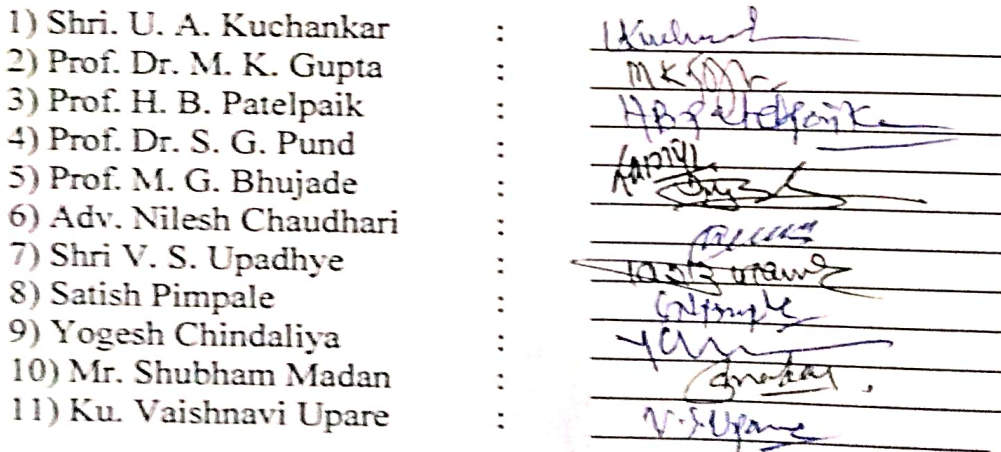 1) Shri. U. A. Kuchankar :
2) Prof. Dr. M. K. Gupta :
3) Prof. H. B. Patelpaik : HBPatelpaik
4) Prof. Dr. S. G. Pund :
5) Prof. M. G. Bhujade :
6) Adv. Nilesh Chaudhari :
7) Shri V. S. Upadhye :
8) Satish Pimpale :
9) Yogesh Chindaliya :
10) Mr. Shubham Madan :
11) Ku. Vaishnavi Upare : V.S.Upare